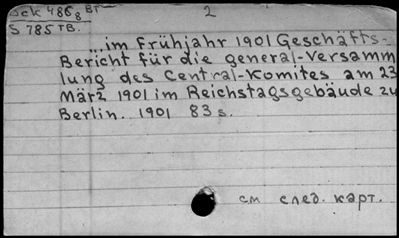 Sck 4868 BT
2
S 785 TB.
...im Frühjahr 1901 Geschäfts-
Bericht für die general-Versamm
lung des Central-Komites am 23
März 1901 im Reichstagsgebäude zu
Berlin. 1901 83 s.
см след. карт.